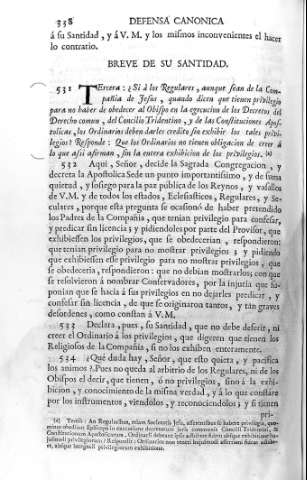 338 DEFENSA CANONICA
á su Santidad, y á V. M. y los mismos inconvenientes el hacer
lo contrario.
BREVE DE SU SANTIDAD.
531 TErcera: ¿Si á los Regulares, aunque sean de la Com-
pañia de Jesus, quando dicen que tienen privilegio
para no haber de obedecer al Obispo en la egecucion de los Decretos del
Derecho comun, del Concilio Tridentino, y de las Constituciones Apos-
tolicas, los Ordinarios deben darles credito sin exhibir los tales privi-
legios? Responde: Que los Ordinarios no tienen obligacion de creer á
lo que asi afirman, sin la entera exhibicion de los privilegios. (a)
532 Aqui, Señor, decide la Sagrada Congregacion, y
decreta la Apostolica Sede un punto importantisimo, y de suma
quietud, y sosiego para la paz publica de los Reynos, y vasallos
de V. M. y de todos los estados, Eclesiasticos, Regulares, y Se-
culares, porque esta pregunta se ocasionó de haber pretendido
los Padres de la Compañia, que tenian privilegio para confesar,
y predicar sin licencia; y pidiendoles por parte del Provisor, que
exhibiessen los privilegios, que se obedecerian, respondieron:
que tenian privilegio para no mostrar privilegios; y pidiendo
que exhibiessen esse privilegio para no mostrar privilegios, que
se obedeceria, respondieron: que no debian mostrarlos; con que
se resolvieron á nombrar Conservadores, por la injuria que su-
ponian que se hacía á sus privilegios en no dejarles predicar, y
confesar sin licencia, de que se originaron tantos, y tan graves
desordenes, como constan á V. M.
533 Declara, pues, su Santidad, que no debe deferir, ni
creer el Ordinario á los privilegios, que digeren que tienen los
Religiosos de la Compañia, si no los exhiben enteramente.
534 ¿Qué duda hay, Señor, que esto quieta, y pacifica
los animos? Pues no queda al arbitrio de los Regulares, ni de los
Obispos el decir, que tienen, ó no privilegios, sino á la exhi-
bicion, y conocimiento de la misma verdad, y á lo que constáre
por los instrumentos, viendolos, y reconociendolos; y si tienen
pri-
(a) Tertiò: An Regularibus, etiam Societatis Jesu, asserentibus se habere privilegia, quo-
minus obediant Episcopo in executione decretorum juris communis Concilii Tridentini, &
Constitutionum Apostolicarum, Ordinarii debeant ipsis adstitere fidem absque exhibitione hu-
jusmodi privilegiorum? Respondit: Ordinarios non teneri hujusmodi assertioni fidem adhibe-
re, absque integrali privilegiorum exhibitione.